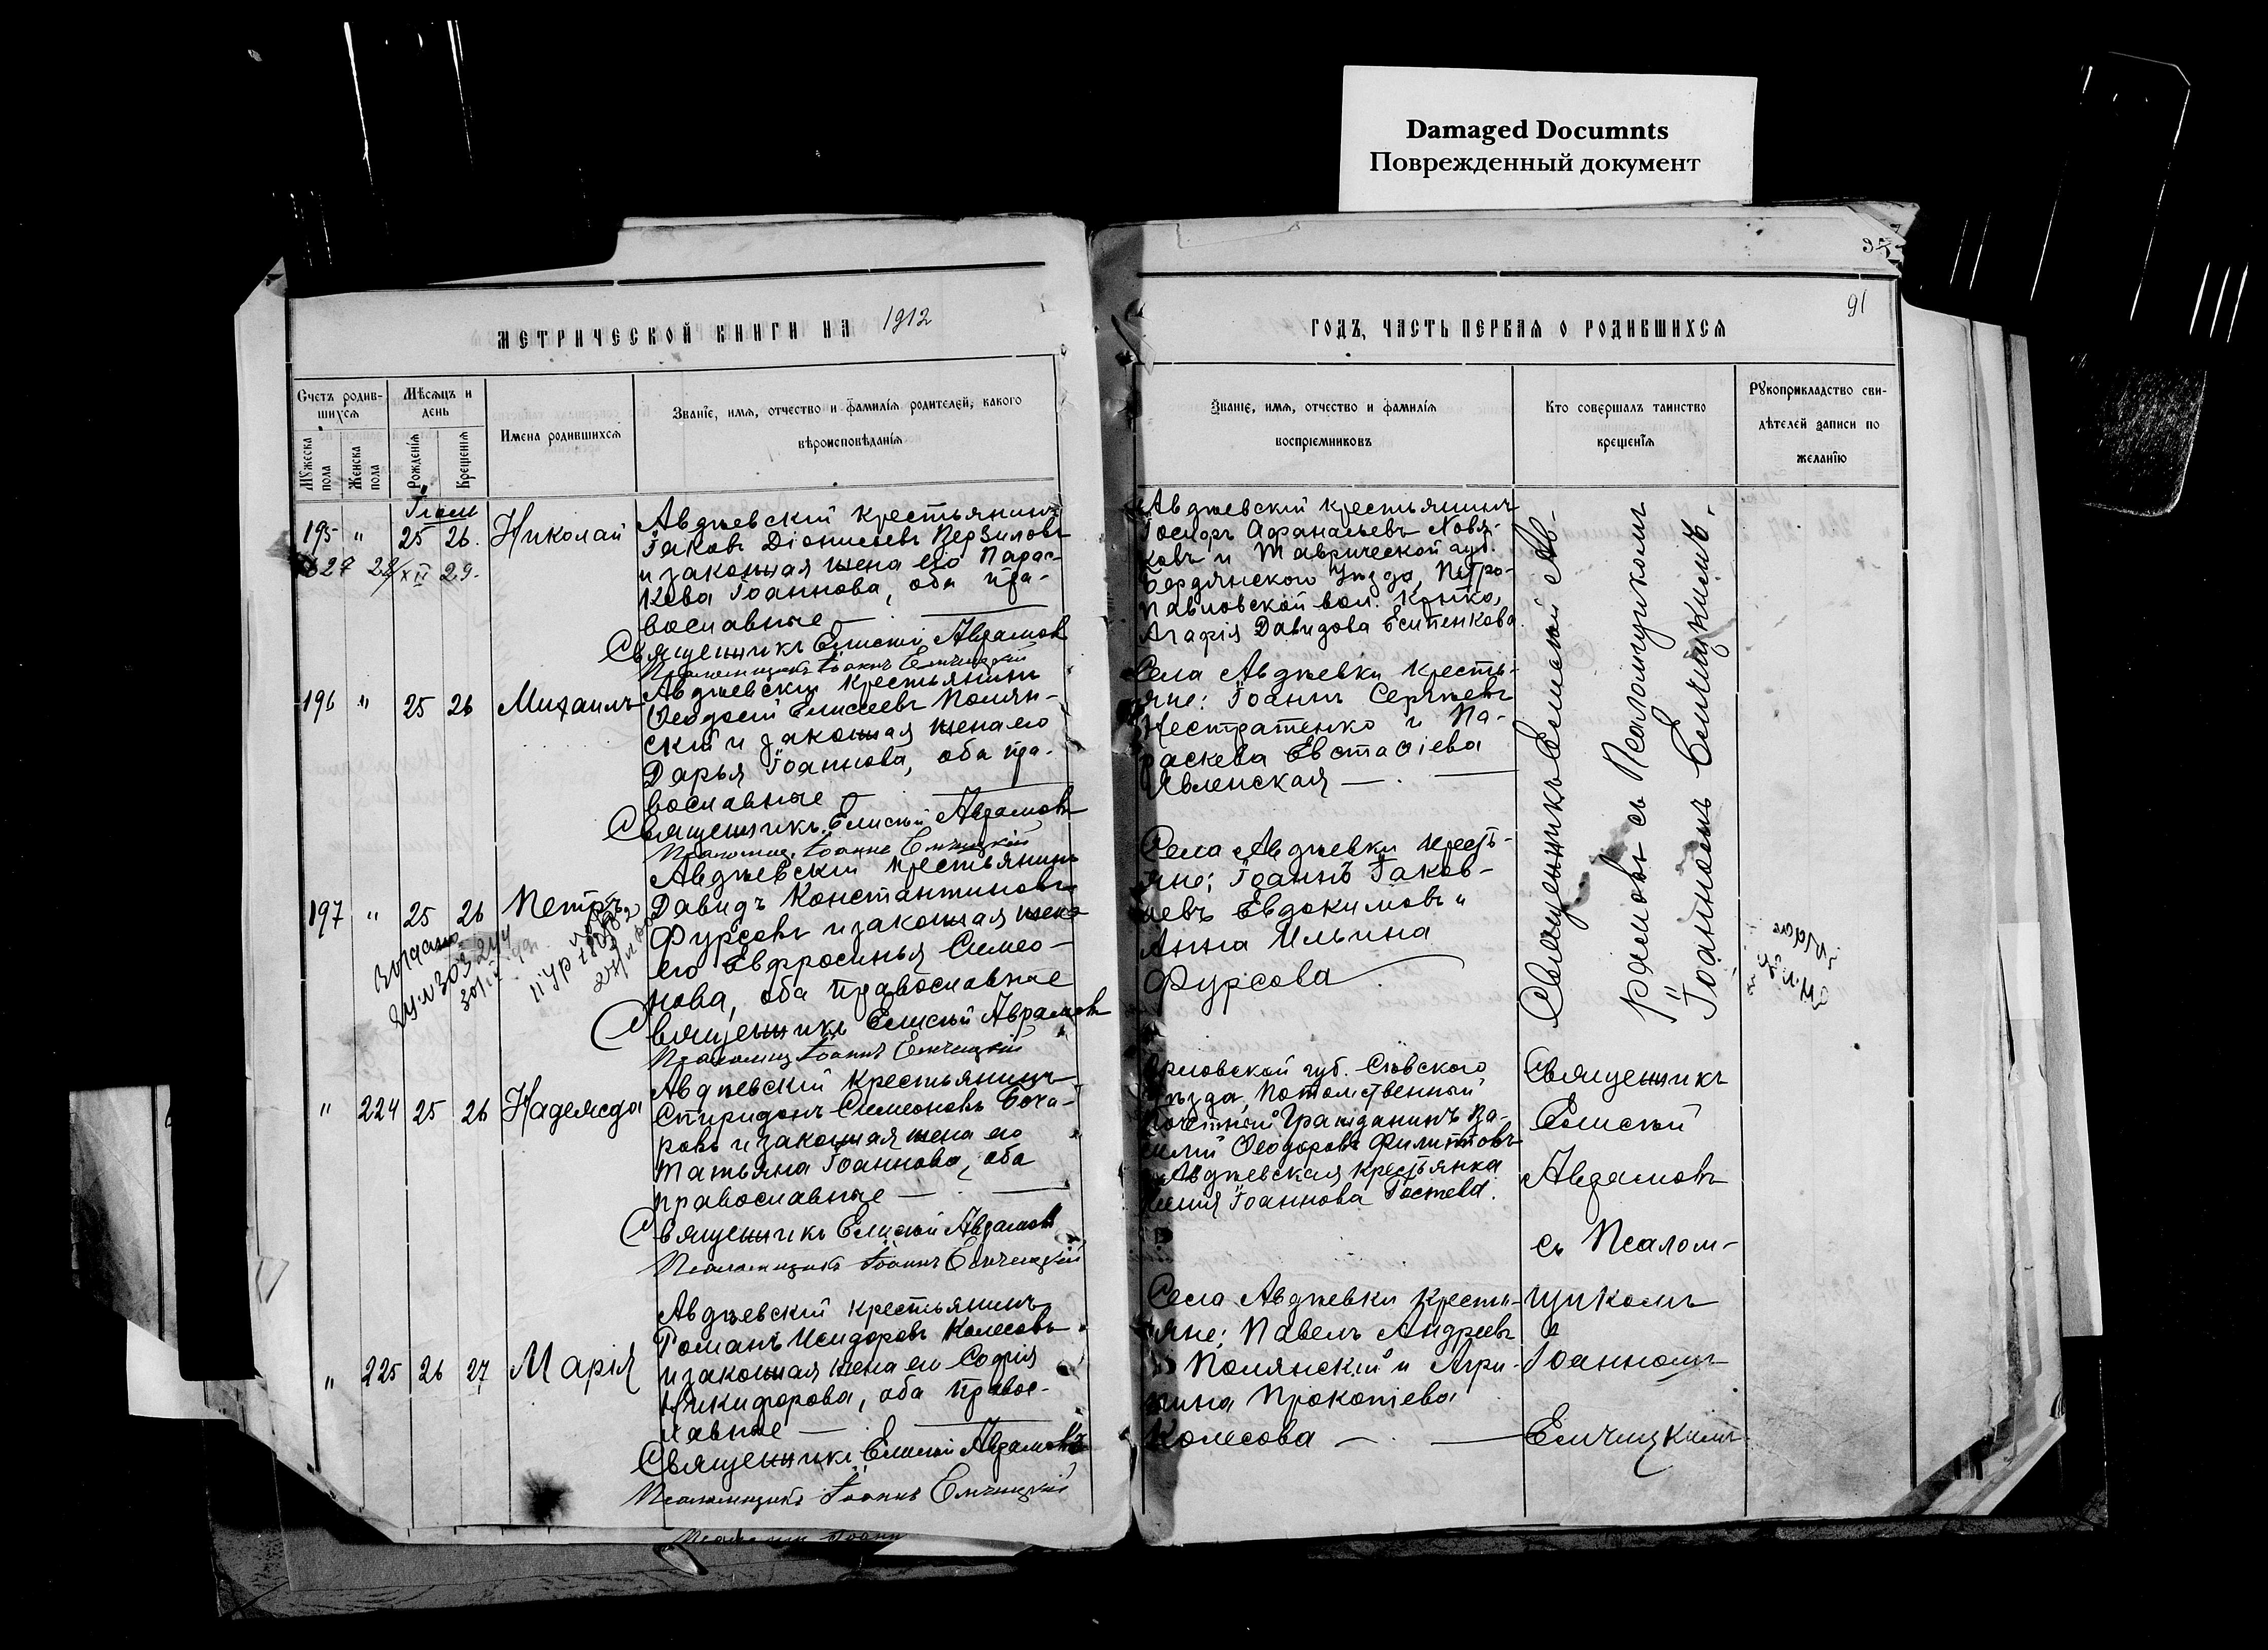 Damaged Documnts
Поврежденный документ
91
МЕТРИЧЕСКОЙ КНИГИ НА 1912
ГОДЪ, ЧАСТЬ ПЕРВАЯ О РОДИВШИХСЯ
Счетъ родив-
шихся
Мѣсяцъ и
день
Мужеска
пола
Женска
пола
Рожденія
Крещенія
Имена родившихся
Званіе, имя, отчество и фамилія родителей, какого
вѣроисповѣданія
Званіе, имя, отчество и фамилія
воспріемниковъ
Кто совершалъ таинство
крещенія
Рукоприкладство сви-
дѣтелей записи по
желанію
195 " 25 26. Николай
29.
Авдѣевскій крестьянинъ
Іаковъ Діонисіевъ Верзиловъ
и законная жена его Парас-
кева Іоаннова, оба пра-
вославные
Священникъ Елисей Авраамовъ
Псаломщикъ Іоаннъ Емчицкій
Авдѣевскій крестьянинъ
Іосифъ Афанасьевъ
ковъ и Таврической губ.
Бердянскаго Уѣзда, Петро-
павловской вол. крѣка,
Агафія Давидова Есипенкова
196 " 25 26 Михаилъ
Авдѣевскій крестьянинъ
Ѳеодосій Елисеевъ Полян-
скій и законная жена его
Дарья Іоаннова, оба пра-
вославные
Священникъ Елисей Авраамовъ
Псаломщ. Іоаннъ Емчицкій
Села Авдѣевки кресть-
яне: Іоаннъ Сергѣевъ
Нестратенко и Па-
раскева Евстафіева
Явленская
197 " 25 26 Петръ
Авдѣевскій крестьянинъ
Давидъ Константиновъ
Фурсовъ и законная жена
его Евфросинья Симео-
нова, оба православные
Священникъ Елисей Авраамовъ
Псаломщ Іоаннъ Емчицкій
Села Авдѣевки кресть-
яне: Іоаннъ Іаков-
левъ Евдокимовъ и
Анна Ильина
Фурсова
Священникъ Елисей Ав-
раамовъ съ Псаломщикомъ
Іоанномъ Емчицкимъ.
" 224 25 26 Надежда
Авдѣевскій крестьянинъ
Спиридонъ Симеоновъ Боча-
ровъ и законная жена его
Татьяна Іоаннова, оба
православные
Священникъ Елисей Авраамовъ
Псаломщикъ Іоаннъ Емчицкій
Орловской губ. Сѣвскаго
Уѣзда, Потомственный
Почетный Гражданинъ Ва-
силій Ѳеодоровъ Филипповъ
и Авдѣевская крестьянка
Іоаннова
Священникъ
Елисей
Авраамовъ
съ Псалом-
щикомъ
Іоанномъ
Емчицкимъ
" 225 26 27 Марія
Авдѣевскій крестьянинъ
Романъ Исидоровъ Колесовъ
и законная жена его Софія
Никифорова, оба правос-
лавные
Священникъ Елисей Авраамовъ
Псаломщикъ Іоаннъ Емчицкій
Села Авдѣевки кресть-
яне: Павелъ Андреевъ
Полянскій и Агри-
пина Прокопіева
Колесова